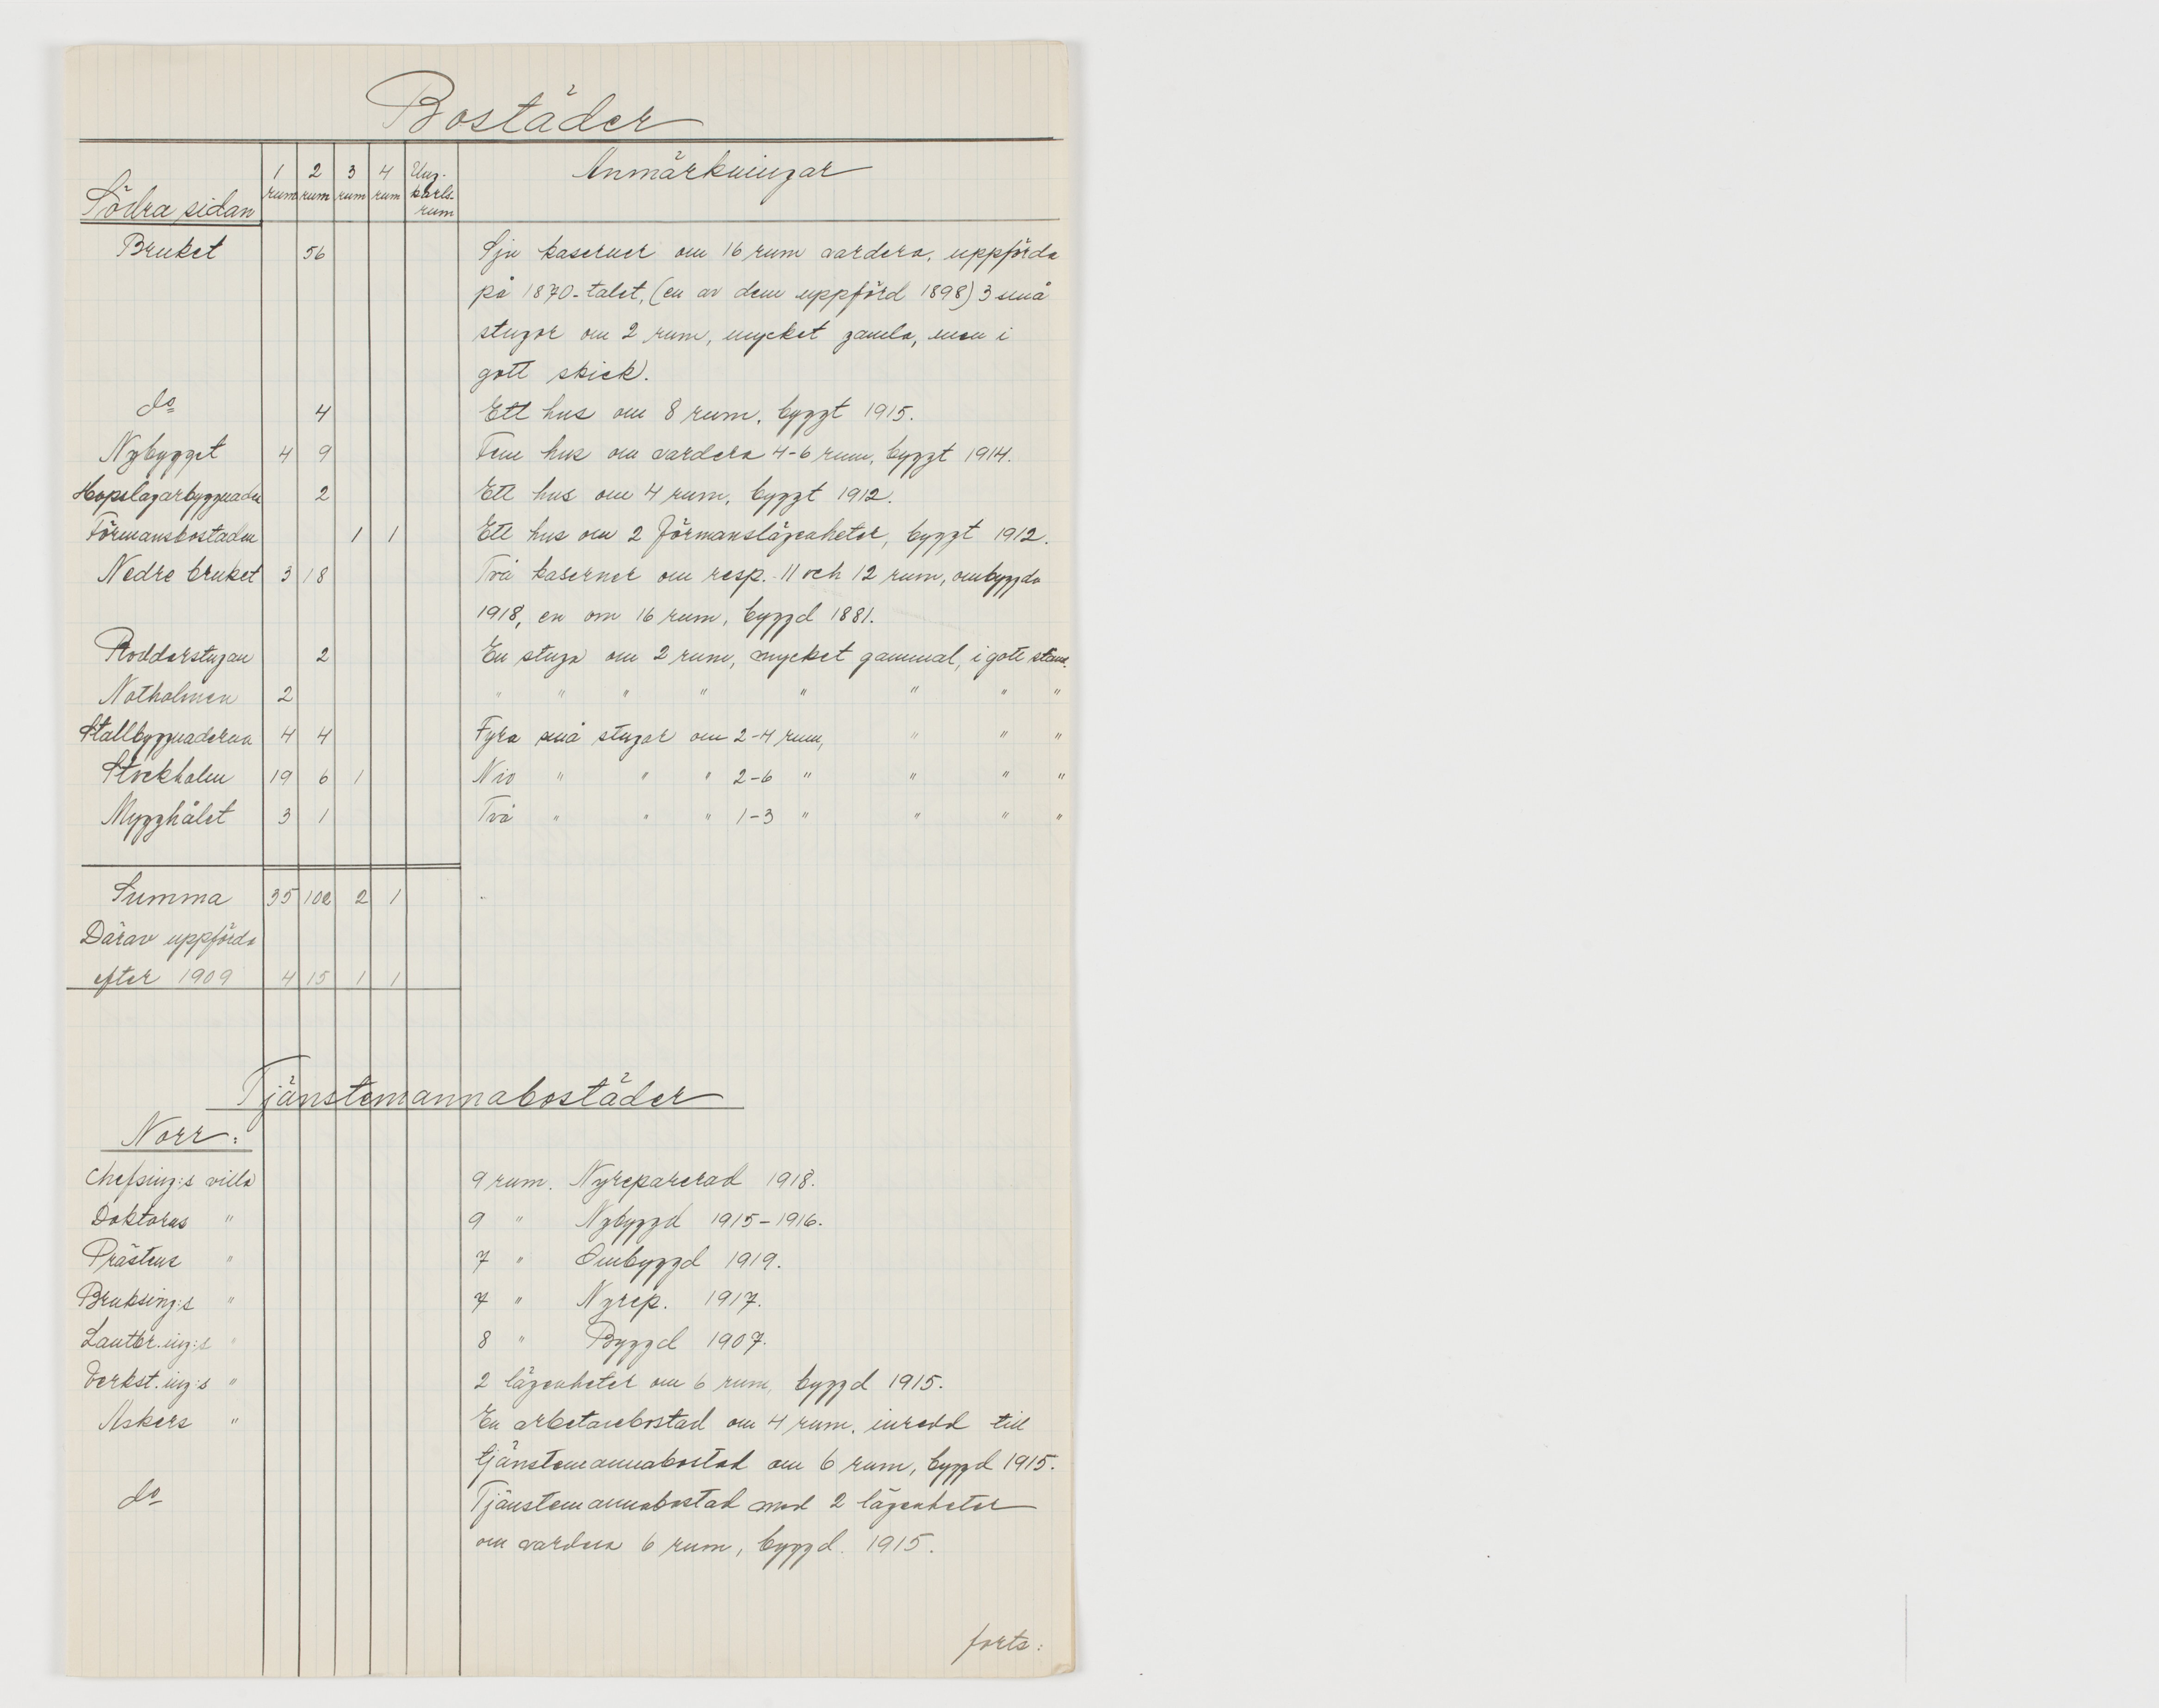 Bostäder
Södra sidan 1 rum 2 rum 3 rum 4 rum Ung-karls-rum Anmärkningar
Bruket 56 Sju kaserner om 16 rum vardera, uppförda
på 1870-talet, (en av dem uppförd 1898) 3 små
stugor om 2 rum, mycket gamla, men i
gott skick.
do 4 Ett hus om 8 rum, byggt 1915.
Nybygget 4 9 Fem hus om vardera 4-6 rum, byggt 1914.
Hopslagarbyggnaden 2 Ett hus om 4 rum, byggt 1912.
Förmansbostaden 1 1 Ett hus om 2 förmanslägenheter, byggt 1912.
Nedre bruket 3 18 Två kaserner om resp. 11 och 12 rum, ombyggda
1918, en om 16 rum, byggd 1881.
Roddarstugan 2 En stuga om 2 rum, mycket gammal, i gott stånd.
Notholmen 2 " " " " " " " "
Stallbyggnaderna 4 4 Fyra små stugor om 2-4 rum, " " "
Stockholm 19 6 1 Nio " " " 2-6 " " " "
Mygghålet 3 1 Två " " " 1-3 " " " "
Summa 35 102 2 1
Därav uppförda
efter 1909 4 15 1 1
Tjänstemannabostäder
Norr:
Chefsing:s villa 9 rum. Nyreparerad 1918.
Doktorns " 9 " Nybyggd 1915-1916.
Prästens " 7 " Ombyggd 1919.
Bruksing:s " 7 " Nyrep. 1917.
Lantbr.ing:s " 8 " Byggd 1907.
Verkst.ing:s " 2 lägenheter om 6 rum, byggd 1915.
Askers " En arbetarebostad om 4 rum, inredd till
tjänstemannabostad om 6 rum, byggd 1915.
do Tjänstemannabostad med 2 lägenheter
om vardera 6 rum, byggd. 1915.
forts: